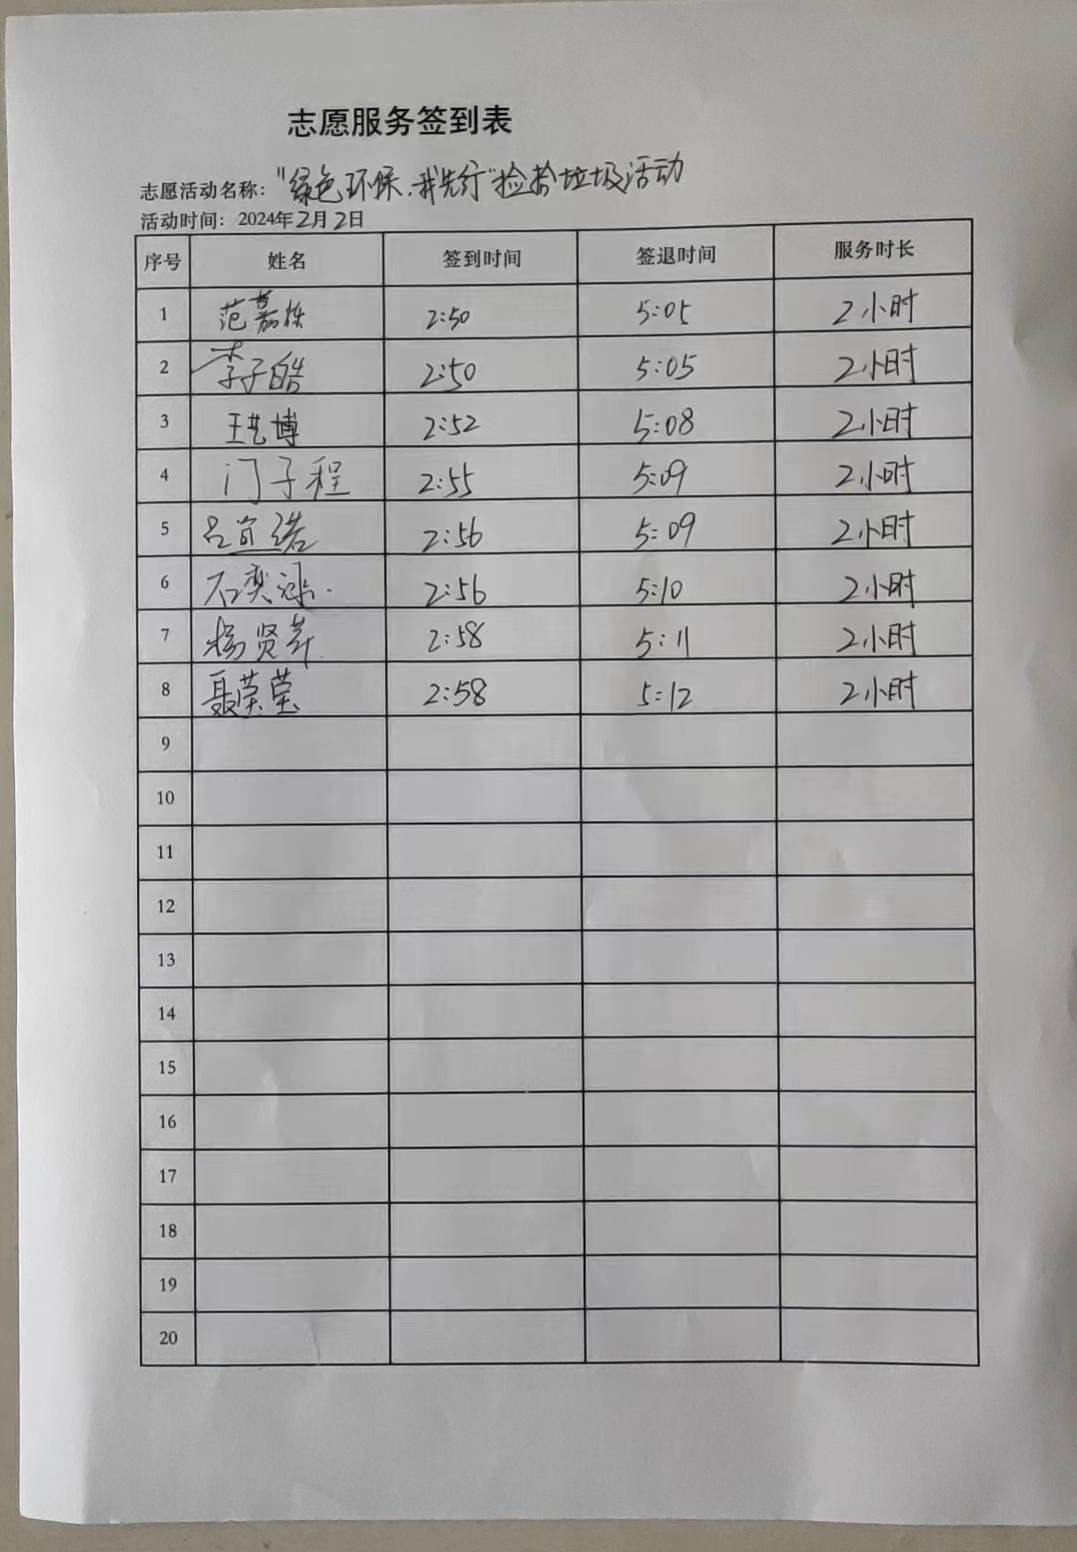 志愿服务签到表
志愿活动名称："绿色环保，我先行"捡拾垃圾活动
活动时间：2024年2月2日
序号 姓名 签到时间 签退时间 服务时长
1 范嘉栋 2:50 5:05 2小时
2 李子皓 2:50 5:05 2小时
3 王艺博 2:52 5:08 2小时
4 门子程 2:55 5:09 2小时
5 吕宜诺 2:56 5:09 2小时
6 石奕 2:56 5:10 2小时
7 杨贤 2:58 5:11 2小时
8 聂莹莹 2:58 5:12 2小时
9
10
11
12
13
14
15
16
17
18
19
20